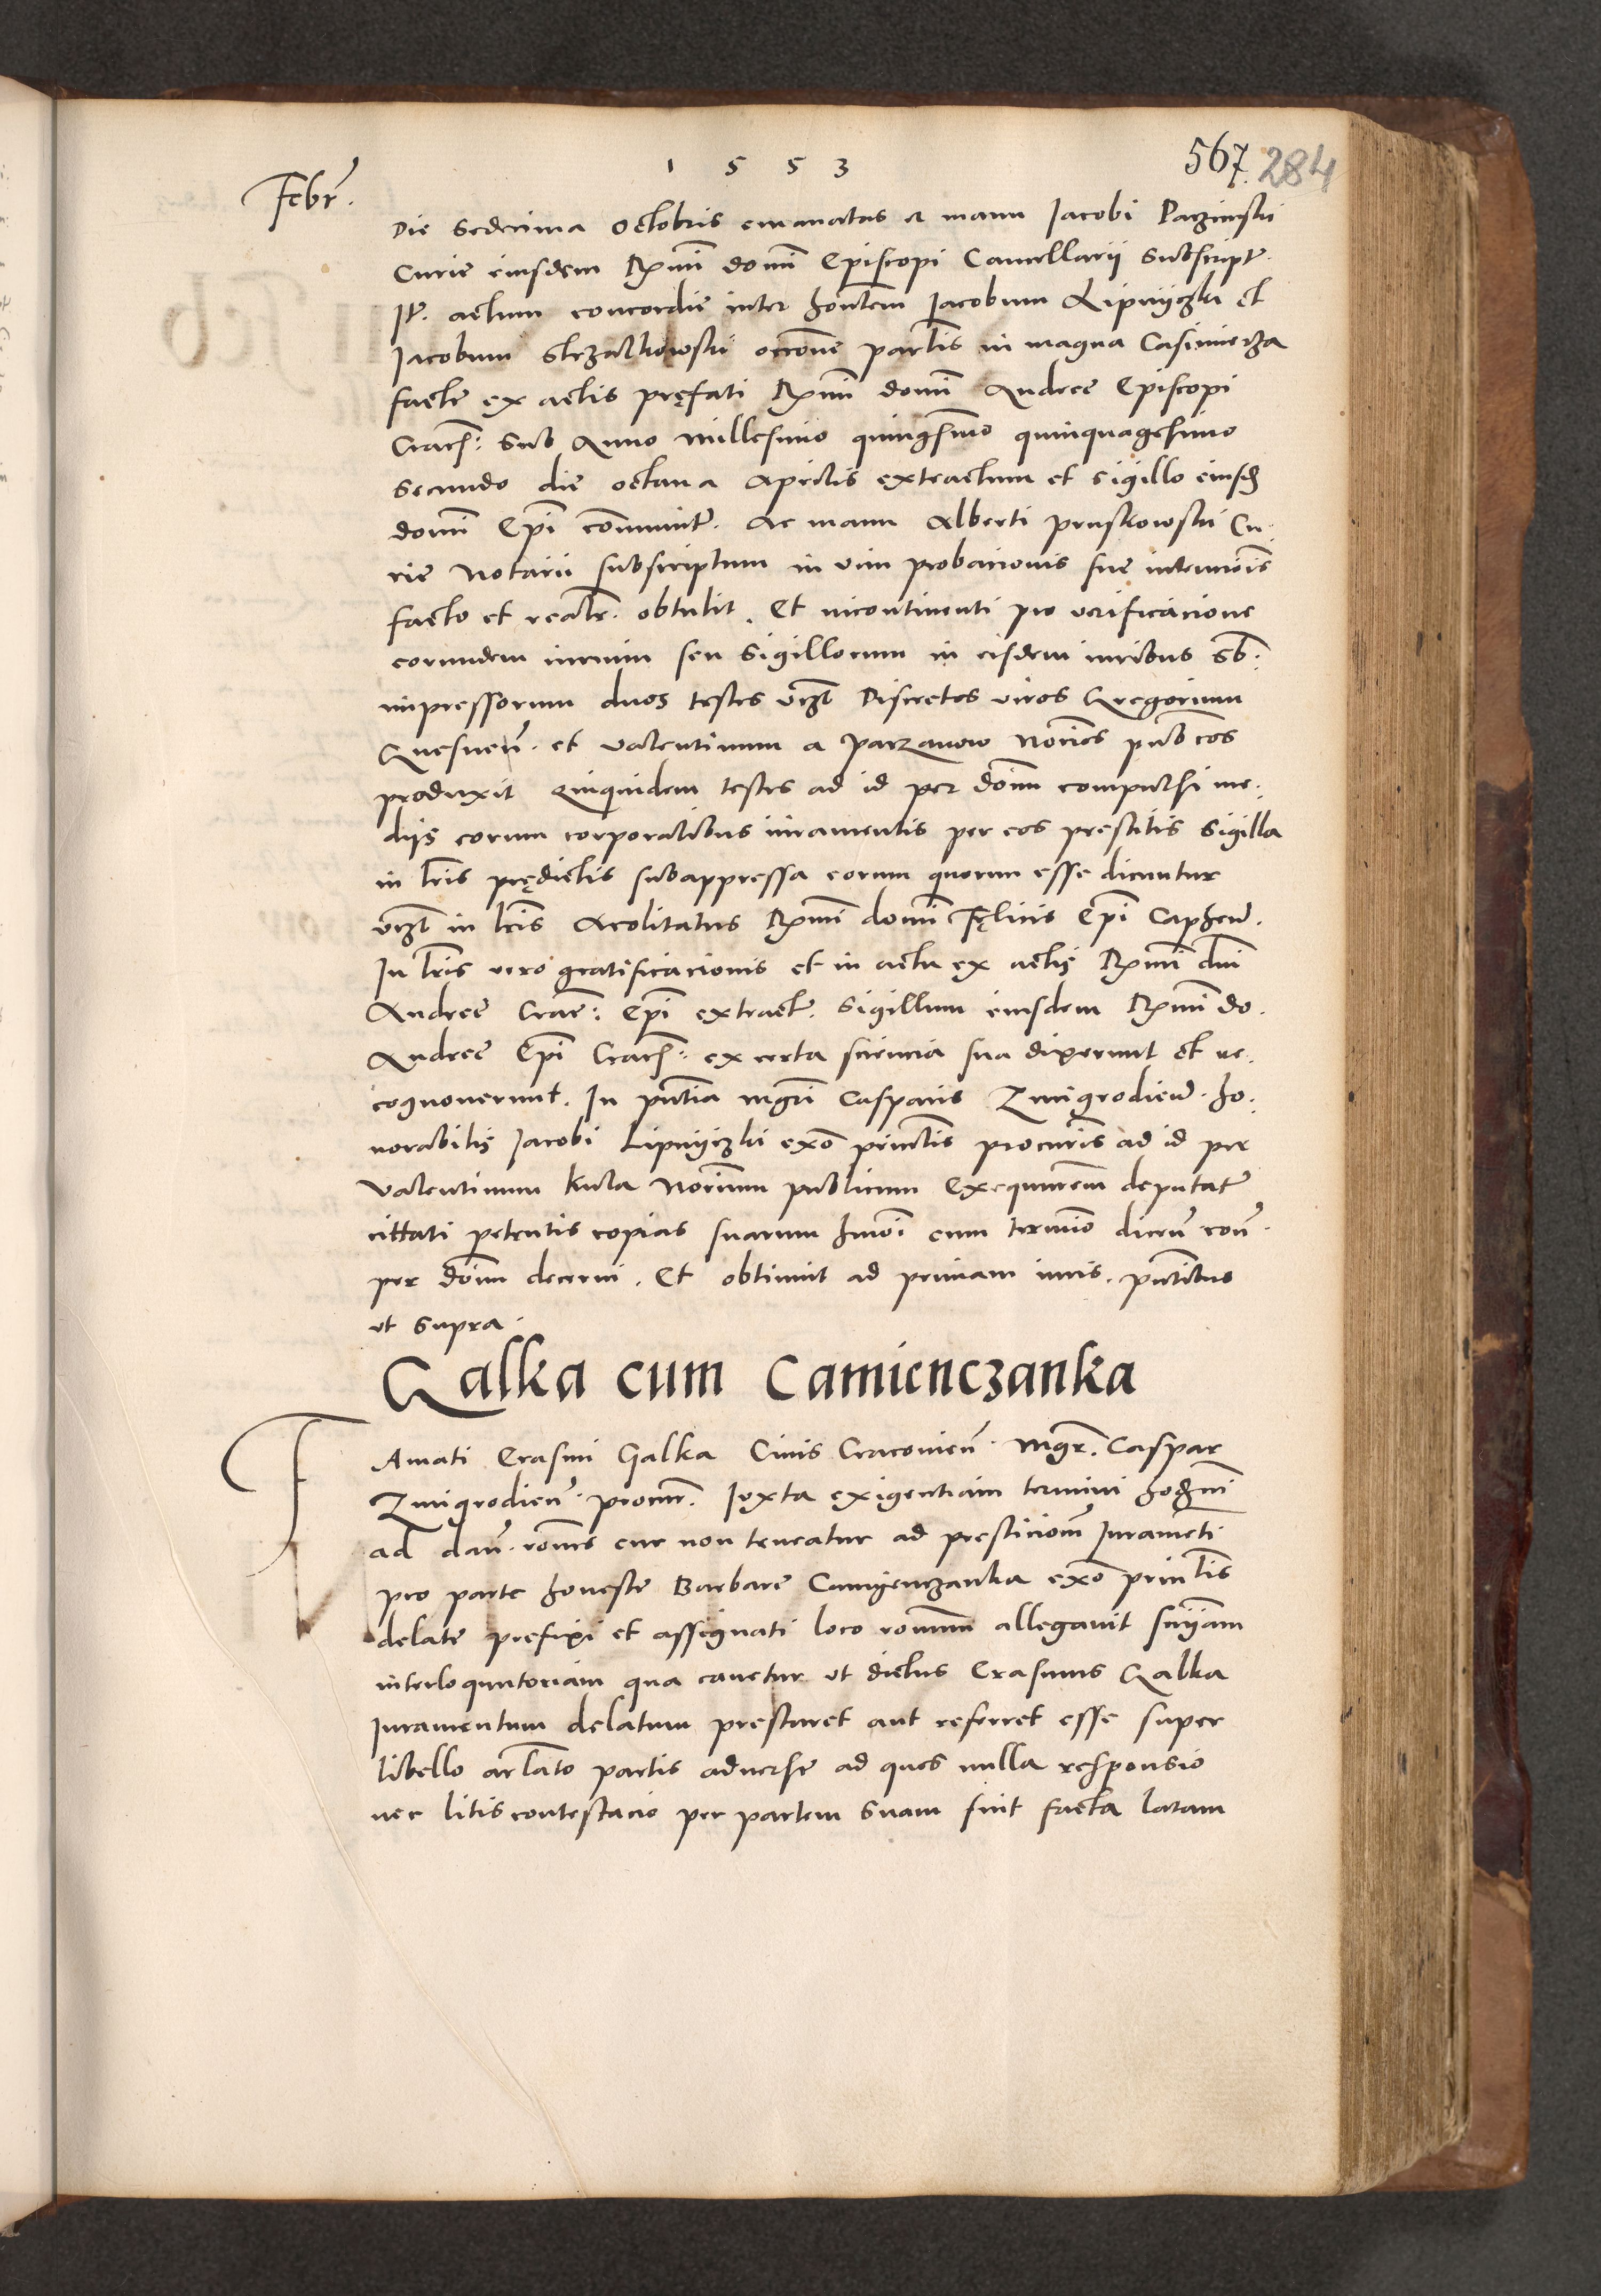 1 5 5 3
567. 284
Febr.
Die Sedecima Octobris emanatas et manu Jacobi Parzinski
Curie eiusdem Rmi domi Episcopi Cancellarii Subscript.
It. actum concordie inter hontem Jacobum Lipnyczki et
Jacobum Strzalkowski occone partis in magna Casimierza
facte ex actis pręfati Rmi domi Andree Episcopi
Cracn: Sub Anno millesimo quingsmo quinquagesimo
Secundo die octaua Aprilis extractum et sigillo eiusd
domi Epi communit. Ac manu Alberti pruskowski Cu.
rie Notarii subscriptum in vim probacionis sue intencionis
facto et realr. obtulit. Et incontinenti pro verificacione
eorundem iurium seu Sigillorum in eisdem iuribus sb.
impressorum duos testes vzt Discretos viros Gregorium
Gnesnen. et valentinum a parzanow Norios pubcos
produxit Quiquidem testes ad id per doim compulsi me.
diis eorum corporalibus iuramentis per eos prestitis Sigilla
in lris prędictis subappressa eorum quorum esse dicuntur
vzt in lris Acolitatus Rmi domi Fęlicis Epi Caphen.
In lris vero gratificacionis et in actu ex actis Rmi dni
Andree Crac: Epi extract. Sigillum eiusdem Rmi do.
Andree Epi Cracn: ex certa sciencia sua dixerunt et re.
cognouerunt. In pntia mgri Casparis Zmigrodien. ho.
norabilis Jacobi Lipnyczki exo princtis procuris ad id per
Valentinum Kula Norium publicum Exequutrem deputat
cittati petentis copias suarum hmoi cum termio dicen con.
per doim decerni. Et obtinuit ad primam iuris. pntibus
ut supra.
Galka cum Camienczanka
Famati Erasmi Galka Ciuis Cracouien. Mgr. Caspar
Zmigrodien. procur. Iuxta exigentiam termini hodrni
ad dan. rones cur non teneatur ad presticiom Iurameti
pro parte honeste Barbare Camyenczanka exo printis
delate prefixi et assignati loco ronum allegauit sniam
interloquutoriam qua cauetur ut dictus Erasmus Galka
Iuramentum delatum prestaret aut referret esse super
libello arlato partis aduerse ad ques nulla responsio
nec litis contestacio per partem suam sint facta latam